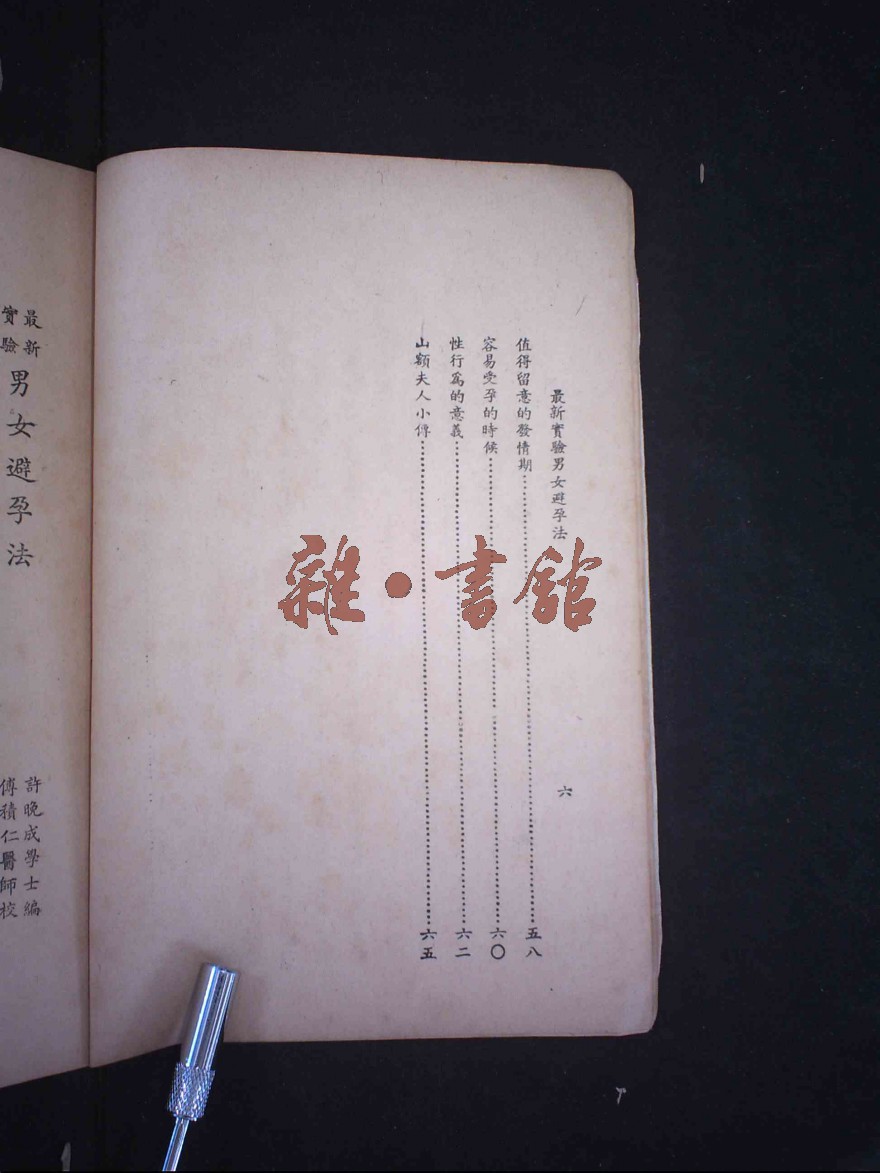 最新實驗男女避孕法
六
值得留意的發情期……五八
容易受孕的時候……六〇
性行爲的意義……六二
山額夫人小傳……六五
最新
實驗
男女避孕法
許晚成學士編
傅積仁醫師校
雜·書館